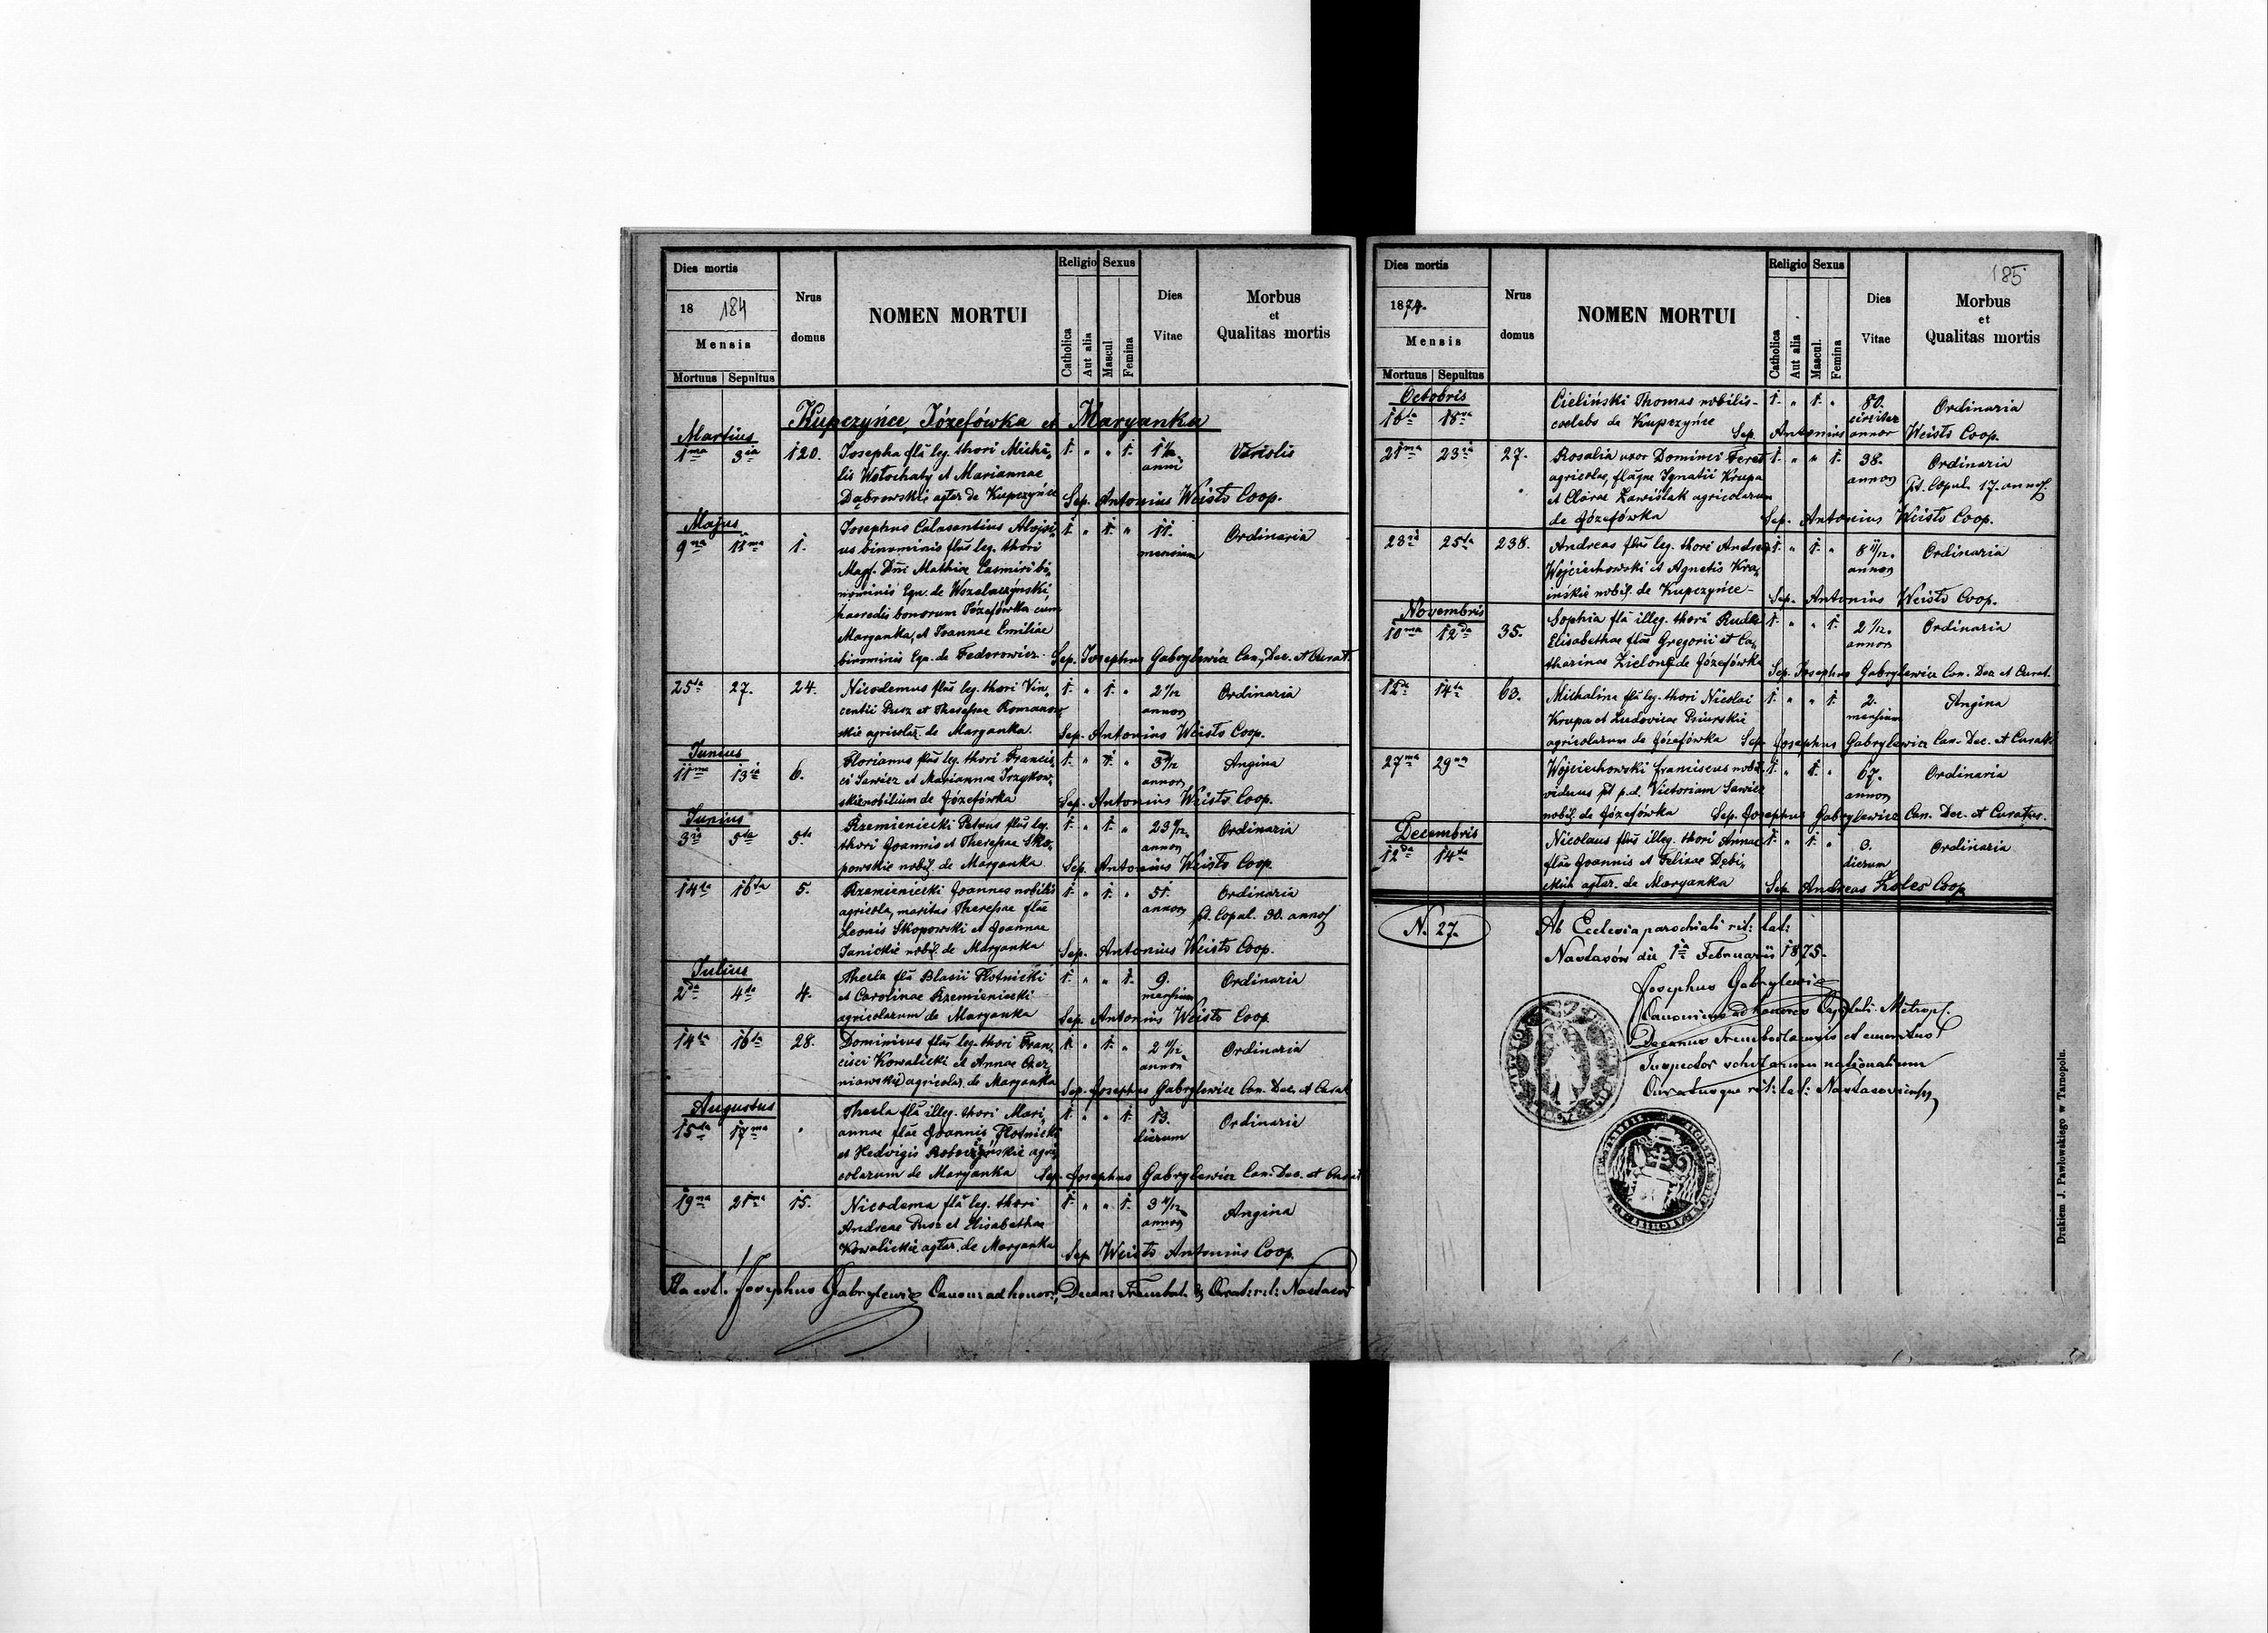 Dies mortis
18 184
Mensis
Mortuus Sepultus
Nrus
domus
NOMEN MORTUI
Religio Sexus
Catholica
Aut alia
Mascul.
Femina
Dies
Vitae
Morbus
et
Qualitas mortis
Kupczyńce, Józefówka et Maryanka
Martius
1ma 3ia 120. Josepha fla leg. thori Micha- 1. " " 1. 1½ Variolis
lis Wołochaty et Mariannae anni
Dąbrowskie agtar. de Kupczyńce Sep. Antonius Weisto Coop.
Majus
9na 11ma 1. Josephus Calasantius Aloysi- 1. " 1. " 11. Ordinaria
us binominis flus leg. thori mensium
Magf. Dni Mathiae Casmiri bi-
nominis Equ. de
haeredis bonorum Józefówka cum
Maryanka, et Joannae Emiliae
binominis Equ. de Fedorowicz. Sep. Josephus Gabrylewicz Can. Dec. et Curat.
25ta 27. 24. Nicodemus flus leg. thori Vin- 1. " 1. " Ordinaria
centii Pusz et Theressae Romanow- annor.
skie agricolar. de Maryanka. Sep. Antonius Weisto Coop.
Junius
11ma 13ia 6. Florianus flus leg. thori Francis- 1. " 1. " Angina
ci Sawicz et Mariannae annor.
skie nobilium de Józefówka Sep. Antonius Weisto Coop.
Junius
3ia 5ta 5ta Krzemieniecki Petrus flus leg. 1. " 1. " Ordinaria
thori Joannis et Theressae Sko- annor.
powskie nobil. de Maryanka Sep. Antonius Weisto Coop.
14ta 16ta 5. Krzemieniecki Joannes nobilis 1. " 1. " 51. Ordinaria
agricola, maritus Theressae flae annor. pt. Copul. 30. annos
Leonis Skopowski et Joannae
Janickie nobil. de Maryanka Sep. Antonius Weisto Coop.
Julius
2da 4ta 4. Thecla fla Blasii Płotnicki 1. " " 1. 9. Ordinaria
et Carolinae Krzemieniecki mensium
agricolarum de Maryanka Sep. Antonius Weisto Coop.
14ta 16ta 28. Dominicus flus leg. thori Fran- 1. " 1. " Ordinaria
cisci Kowalicki et Annae Czer- annor.
niawskie agricolar. de Maryanka Sep. Josephus Gabrylewicz Can. Dec. et Curat
Augustus
15ta 17ma Thecla fla illeg. thori Mari- 1. " " 1. 13. Ordinaria
annae flae Joannis Płotnicki dierum
et Hedvigis agri-
colarum de Maryanka Sep. Josephus Gabrylewicz Can. Dec. et Curat
19na 21ma 15. Nicodema fla leg. thori 1. " " 1. Angina
Andreae Pusz et Elisabethae annor.
Kowalickie agtar. de Maryanka Sep. Weisto Antonius Coop.
Josephus Gabrylewicz Canon. ad honor., Decan. Trembol. & Curat. rit. l. Nastasow
185
Dies mortis
1874.
Mensis
Mortuus Sepultus
Nrus
domus
NOMEN MORTUI
Religio Sexus
Catholica
Aut alia
Mascul.
Femina
Dies
Vitae
Morbus
et
Qualitas mortis
Octobris
16ta 18va Cieliński Thomas nobilis- 1. " 1. " 80. Ordinaria
coelebs de Kupczyńce circiter
Sep. Antonius annor Weisto Coop.
21ma 23ia 27. Rosalia uxor Dominici Feret 1. " " 1. 38. Ordinaria
agricolae, flaque Ignatii Krupa annor. pt. Copul. 17. annos
et Clarae Zawiślak agricolarum
de Józefówka Sep. Antonius Weisto Coop.
23ia 25ta 238. Andreas flus leg. thori Andreae 1. " 1. " 8 11/12. Ordinaria
Wojciechowski et Agnetis Kra- annor.
ińskie nobil. de Kupczyńce- Sep. Antonius Weisto Coop.
Novembris
10ma 12da 35. Sophia fla illeg. thori Rudka 1. " " 1. Ordinaria
Elisabethae flae Gregorii et Ca- annor.
tharinae Zielonę de Józefówka Sep. Josephus Gabrylewicz Can. Dec. et Curat.
12da 14ta 63. Michalina fla leg. thori Nicolai 1. " " 1. 2. Angina
Krupa et Ludovicae Psiurskie mensium
agricolarum de Józefówka Sep. Josephus Gabrylewicz Can. Dec. et Curat.
27ma 29na Wojciechowski Franciscus nobil. 1. " 1. " 67. Ordinaria
viduus pt p.d. Victoriam Sawicz annor.
nobil. de Józefówka Sep. Josephus Gabrylewicz Can. Dec. et Curatus.
Decembris
12da 14ta Nicolaus flus illeg. thori Annae 1. " 1. " 3. Ordinaria
flae Joannis et Felixae Dębi- dierum
ckich agtar. de Maryanka Sep. Andreas Koles Coop
N. 27. Ab Ecclesia parochiali rit: lat:
Nastasów die 1a Februarii 1875.
Josephus Gabrylewicz
Canonicus ad honores Capituli Metropl.
Decanus Trembovlaensis et emeritus
Inspector scholarum nationalium
Curatusque rit: lat: Nastasoviensis
Drukiem J. Pawłowskiego w Tarnopolu.